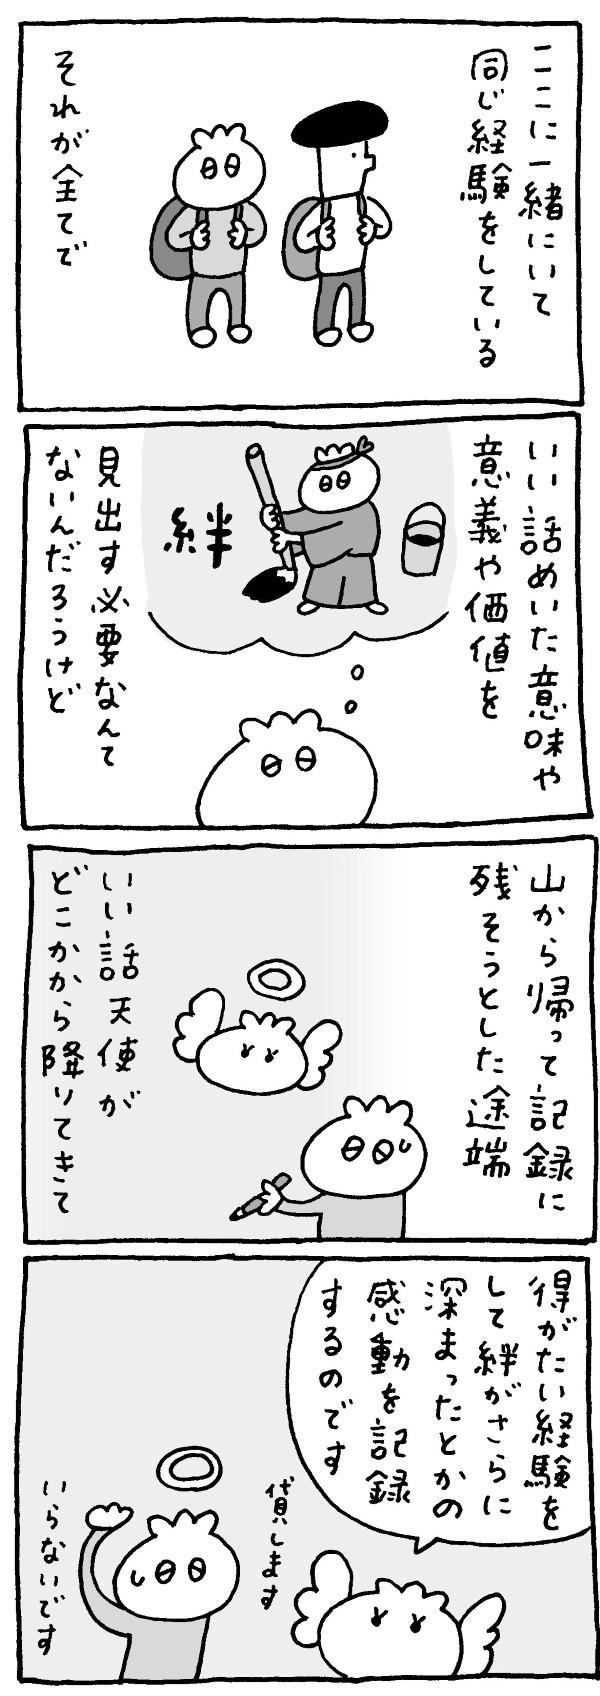 ここに一緒にいて
同じ経験をしている
それが全てで
いい話めいた意味や
意義や価値を
絆
見出す必要なんて
ないんだろうけど
山から帰って記録に
残そうとした途端
いい話天使が
どこかから降りてきて
得がたい経験を
して絆がさらに
深まったとかの
感動を記録
するのです
貸します
いらないです